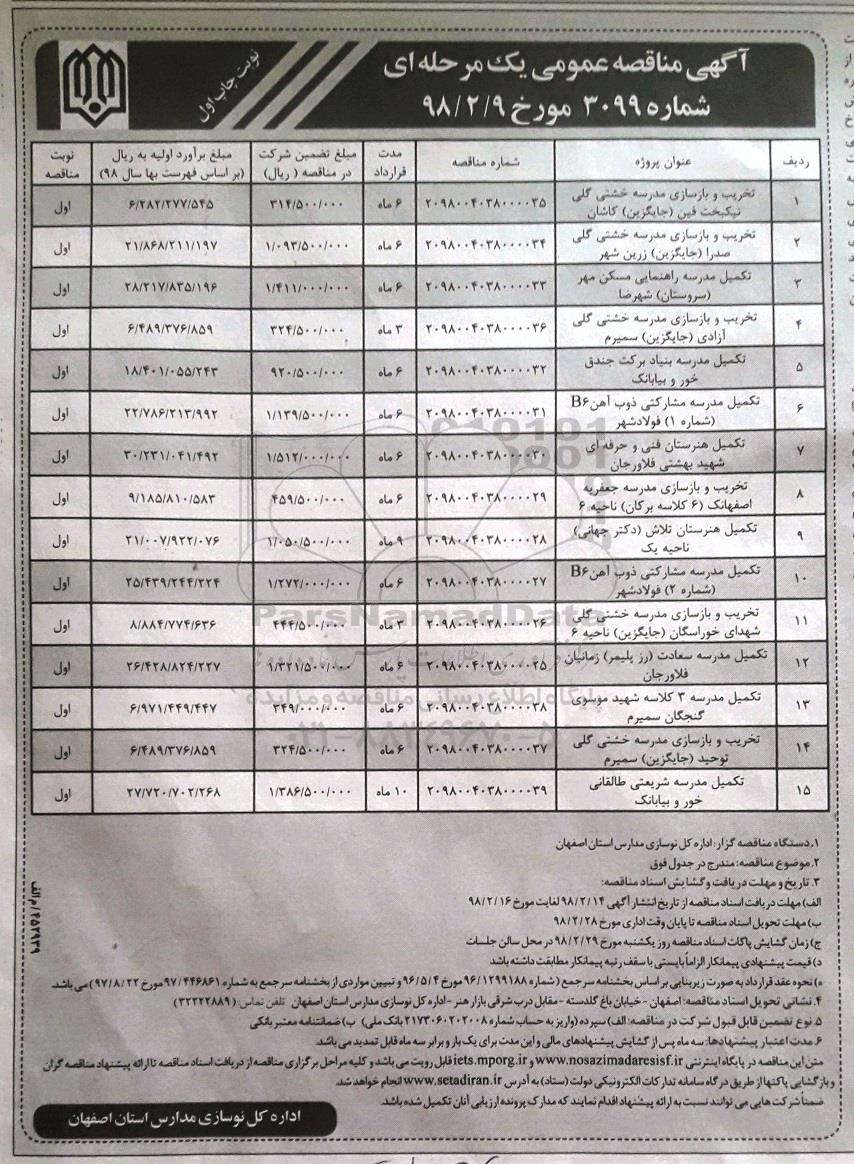 آگهی مناقصه عمومی یک مرحله ای
شماره ۳۰۹۹ مورخ ۹۸/۲/۹
نوبت چاپ اول
ردیف عنوان پروژه شماره مناقصه مدت قرارداد مبلغ تضمین شرکت در مناقصه (ریال) مبلغ برآورد اولیه به ریال (بر اساس فهرست بها سال ۹۸) نوبت مناقصه
۱ تخریب و بازسازی مدرسه خشتی گلی نیکبخت فین (جایگزین) کاشان ۲۰۹۸۰۰۴۰۳۸۰۰۰۰۳۵ ۶ ماه ۳۱۴/۵۰۰/۰۰۰ ۶/۲۸۲/۲۷۷/۵۴۵ اول
۲ تخریب و بازسازی مدرسه خشتی گلی صدرا (جایگزین) زرین شهر ۲۰۹۸۰۰۴۰۳۸۰۰۰۰۳۴ ۶ ماه ۱/۰۹۳/۵۰۰/۰۰۰ ۲۱/۸۶۸/۲۱۱/۱۹۷ اول
۳ تکمیل مدرسه راهنمایی مسکن مهر (سروستان) شهرضا ۲۰۹۸۰۰۴۰۳۸۰۰۰۰۳۳ ۶ ماه ۱/۴۱۱/۰۰۰/۰۰۰ ۲۸/۲۱۷/۸۳۵/۱۹۶ اول
۴ تخریب و بازسازی مدرسه خشتی گلی آزادی (جایگزین) سمیرم ۲۰۹۸۰۰۴۰۳۸۰۰۰۰۳۶ ۳ ماه ۳۲۴/۵۰۰/۰۰۰ ۶/۴۸۹/۳۷۶/۸۵۹ اول
۵ تکمیل مدرسه بنیاد برکت جندق خور و بیابانک ۲۰۹۸۰۰۴۰۳۸۰۰۰۰۳۲ ۶ ماه ۹۲۰/۵۰۰/۰۰۰ ۱۸/۴۰۱/۰۵۵/۲۴۳ اول
۶ تکمیل مدرسه مشارکتی ذوب آهن B۶ (شماره ۱) فولادشهر ۲۰۹۸۰۰۴۰۳۸۰۰۰۰۳۱ ۶ ماه ۱/۱۳۹/۵۰۰/۰۰۰ ۲۲/۷۸۶/۲۱۳/۹۹۲ اول
۷ تکمیل هنرستان فنی و حرفه ای شهید بهشتی فلاورجان ۲۰۹۸۰۰۴۰۳۸۰۰۰۰۳۰ ۶ ماه ۱/۵۱۲/۰۰۰/۰۰۰ ۳۰/۲۳۱/۰۴۱/۴۹۲ اول
۸ تخریب و بازسازی مدرسه جعفریه اصفهانک (۶ کلاسه برکان) ناحیه ۶ ۲۰۹۸۰۰۴۰۳۸۰۰۰۰۲۹ ۶ ماه ۴۵۹/۵۰۰/۰۰۰ ۹/۱۸۵/۸۱۰/۵۸۳ اول
۹ تکمیل هنرستان تلاش (دکتر جهانی) ناحیه یک ۲۰۹۸۰۰۴۰۳۸۰۰۰۰۲۸ ۹ ماه ۱/۰۵۰/۵۰۰/۰۰۰ ۲۱/۰۰۷/۹۲۲/۰۷۶ اول
۱۰ تکمیل مدرسه مشارکتی ذوب آهن B۶ (شماره ۲) فولادشهر ۲۰۹۸۰۰۴۰۳۸۰۰۰۰۲۷ ۶ ماه ۱/۲۷۲/۰۰۰/۰۰۰ ۲۵/۴۳۹/۲۴۴/۲۲۴ اول
۱۱ تخریب و بازسازی مدرسه خشتی گلی شهدای خوراسگان (جایگزین) ناحیه ۶ ۲۰۹۸۰۰۴۰۳۸۰۰۰۰۲۶ ۳ ماه ۴۴۴/۵۰۰/۰۰۰ ۸/۸۸۴/۷۷۴/۶۳۶ اول
۱۲ تکمیل مدرسه سعادت (رز پلیمر) زمانیان فلاورجان ۲۰۹۸۰۰۴۰۳۸۰۰۰۰۲۵ ۶ ماه ۱/۳۲۱/۵۰۰/۰۰۰ ۲۶/۴۲۸/۸۲۴/۲۲۷ اول
۱۳ تکمیل مدرسه ۳ کلاسه شهید موسوی گنجگان سمیرم ۲۰۹۸۰۰۴۰۳۸۰۰۰۰۳۸ ۶ ماه ۳۴۹/۰۰۰/۰۰۰ ۶/۹۷۱/۴۴۹/۴۴۷ اول
۱۴ تخریب و بازسازی مدرسه خشتی گلی توحید (جایگزین) سمیرم ۲۰۹۸۰۰۴۰۳۸۰۰۰۰۳۷ ۶ ماه ۳۲۴/۵۰۰/۰۰۰ ۶/۴۸۹/۳۷۶/۸۵۹ اول
۱۵ تکمیل مدرسه شریعتی طالقانی خور و بیابانک ۲۰۹۸۰۰۴۰۳۸۰۰۰۰۳۹ ۱۰ ماه ۱/۳۸۶/۵۰۰/۰۰۰ ۲۷/۷۲۰/۷۰۲/۲۶۸ اول
ParsNamadData
پایگاه اطلاع رسانی مناقصه و مزایده
۰۲۱-۸۸۳۴۹۶۷۰-۵
۱. دستگاه مناقصه گزار: اداره کل نوسازی مدارس استان اصفهان
۲. موضوع مناقصه: مندرج در جدول فوق
۳. تاریخ و مهلت دریافت و گشایش اسناد مناقصه:
الف) مهلت دریافت اسناد مناقصه از تاریخ انتشار آگهی ۹۸/۲/۱۴ لغایت مورخ ۹۸/۲/۱۶
ب) مهلت تحویل اسناد مناقصه تا پایان وقت اداری مورخ ۹۸/۲/۲۸
ج) زمان گشایش پاکات اسناد مناقصه روز یکشنبه مورخ ۹۸/۲/۲۹ در محل سالن جلسات
د) قیمت پیشنهادی پیمانکار الزاماً بایستی با سقف رتبه پیمانکار مطابقت داشته باشد
ه) نحوه عقد قرارداد به صورت زیربنایی بر اساس بخشنامه سرجمع (شماره ۹۶/۱۲۹۹۱۸۸ مورخ ۹۶/۵/۴ و تبیین مواردی از بخشنامه سرجمع به شماره ۹۷/۴۴۶۸۶۱ مورخ ۹۷/۸/۲۲) می باشد.
۴. نشانی تحویل اسناد مناقصه: اصفهان - خیابان باغ گلدسته - مقابل درب شرقی بازار هنر - اداره کل نوسازی مدارس استان اصفهان تلفن تماس: (۳۲۲۲۲۸۸۹)
۵. نوع تضمین قابل قبول شرکت در مناقصه: الف) سپرده (واریز به حساب شماره ۲۱۷۳۰۶۰۲۰۲۰۰۸ بانک ملی) ب) ضمانتنامه معتبر بانکی
۶. مدت اعتبار پیشنهادها: سه ماه پس از گشایش پیشنهادهای مالی و این مدت برای یک بار و برابر سه ماه قابل تمدید می باشد.
متن این مناقصه در پایگاه اینترنتی www.nosazimadaresisf.ir و iets.mporg.ir قابل رویت می باشد و کلیه مراحل برگزاری مناقصه از دریافت اسناد مناقصه تا ارائه پیشنهاد مناقصه گران
و بازگشایی پاکتها از طریق درگاه سامانه تدارکات الکترونیکی دولت (ستاد) به آدرس www.setadiran.ir انجام خواهد شد.
ضمناً شرکت هایی می توانند نسبت به ارائه پیشنهاد اقدام نمایند که مدارک پرونده ارزیابی آنان تکمیل شده باشد.
اداره کل نوسازی مدارس استان اصفهان
۴۵۲۹۳۹/م الف